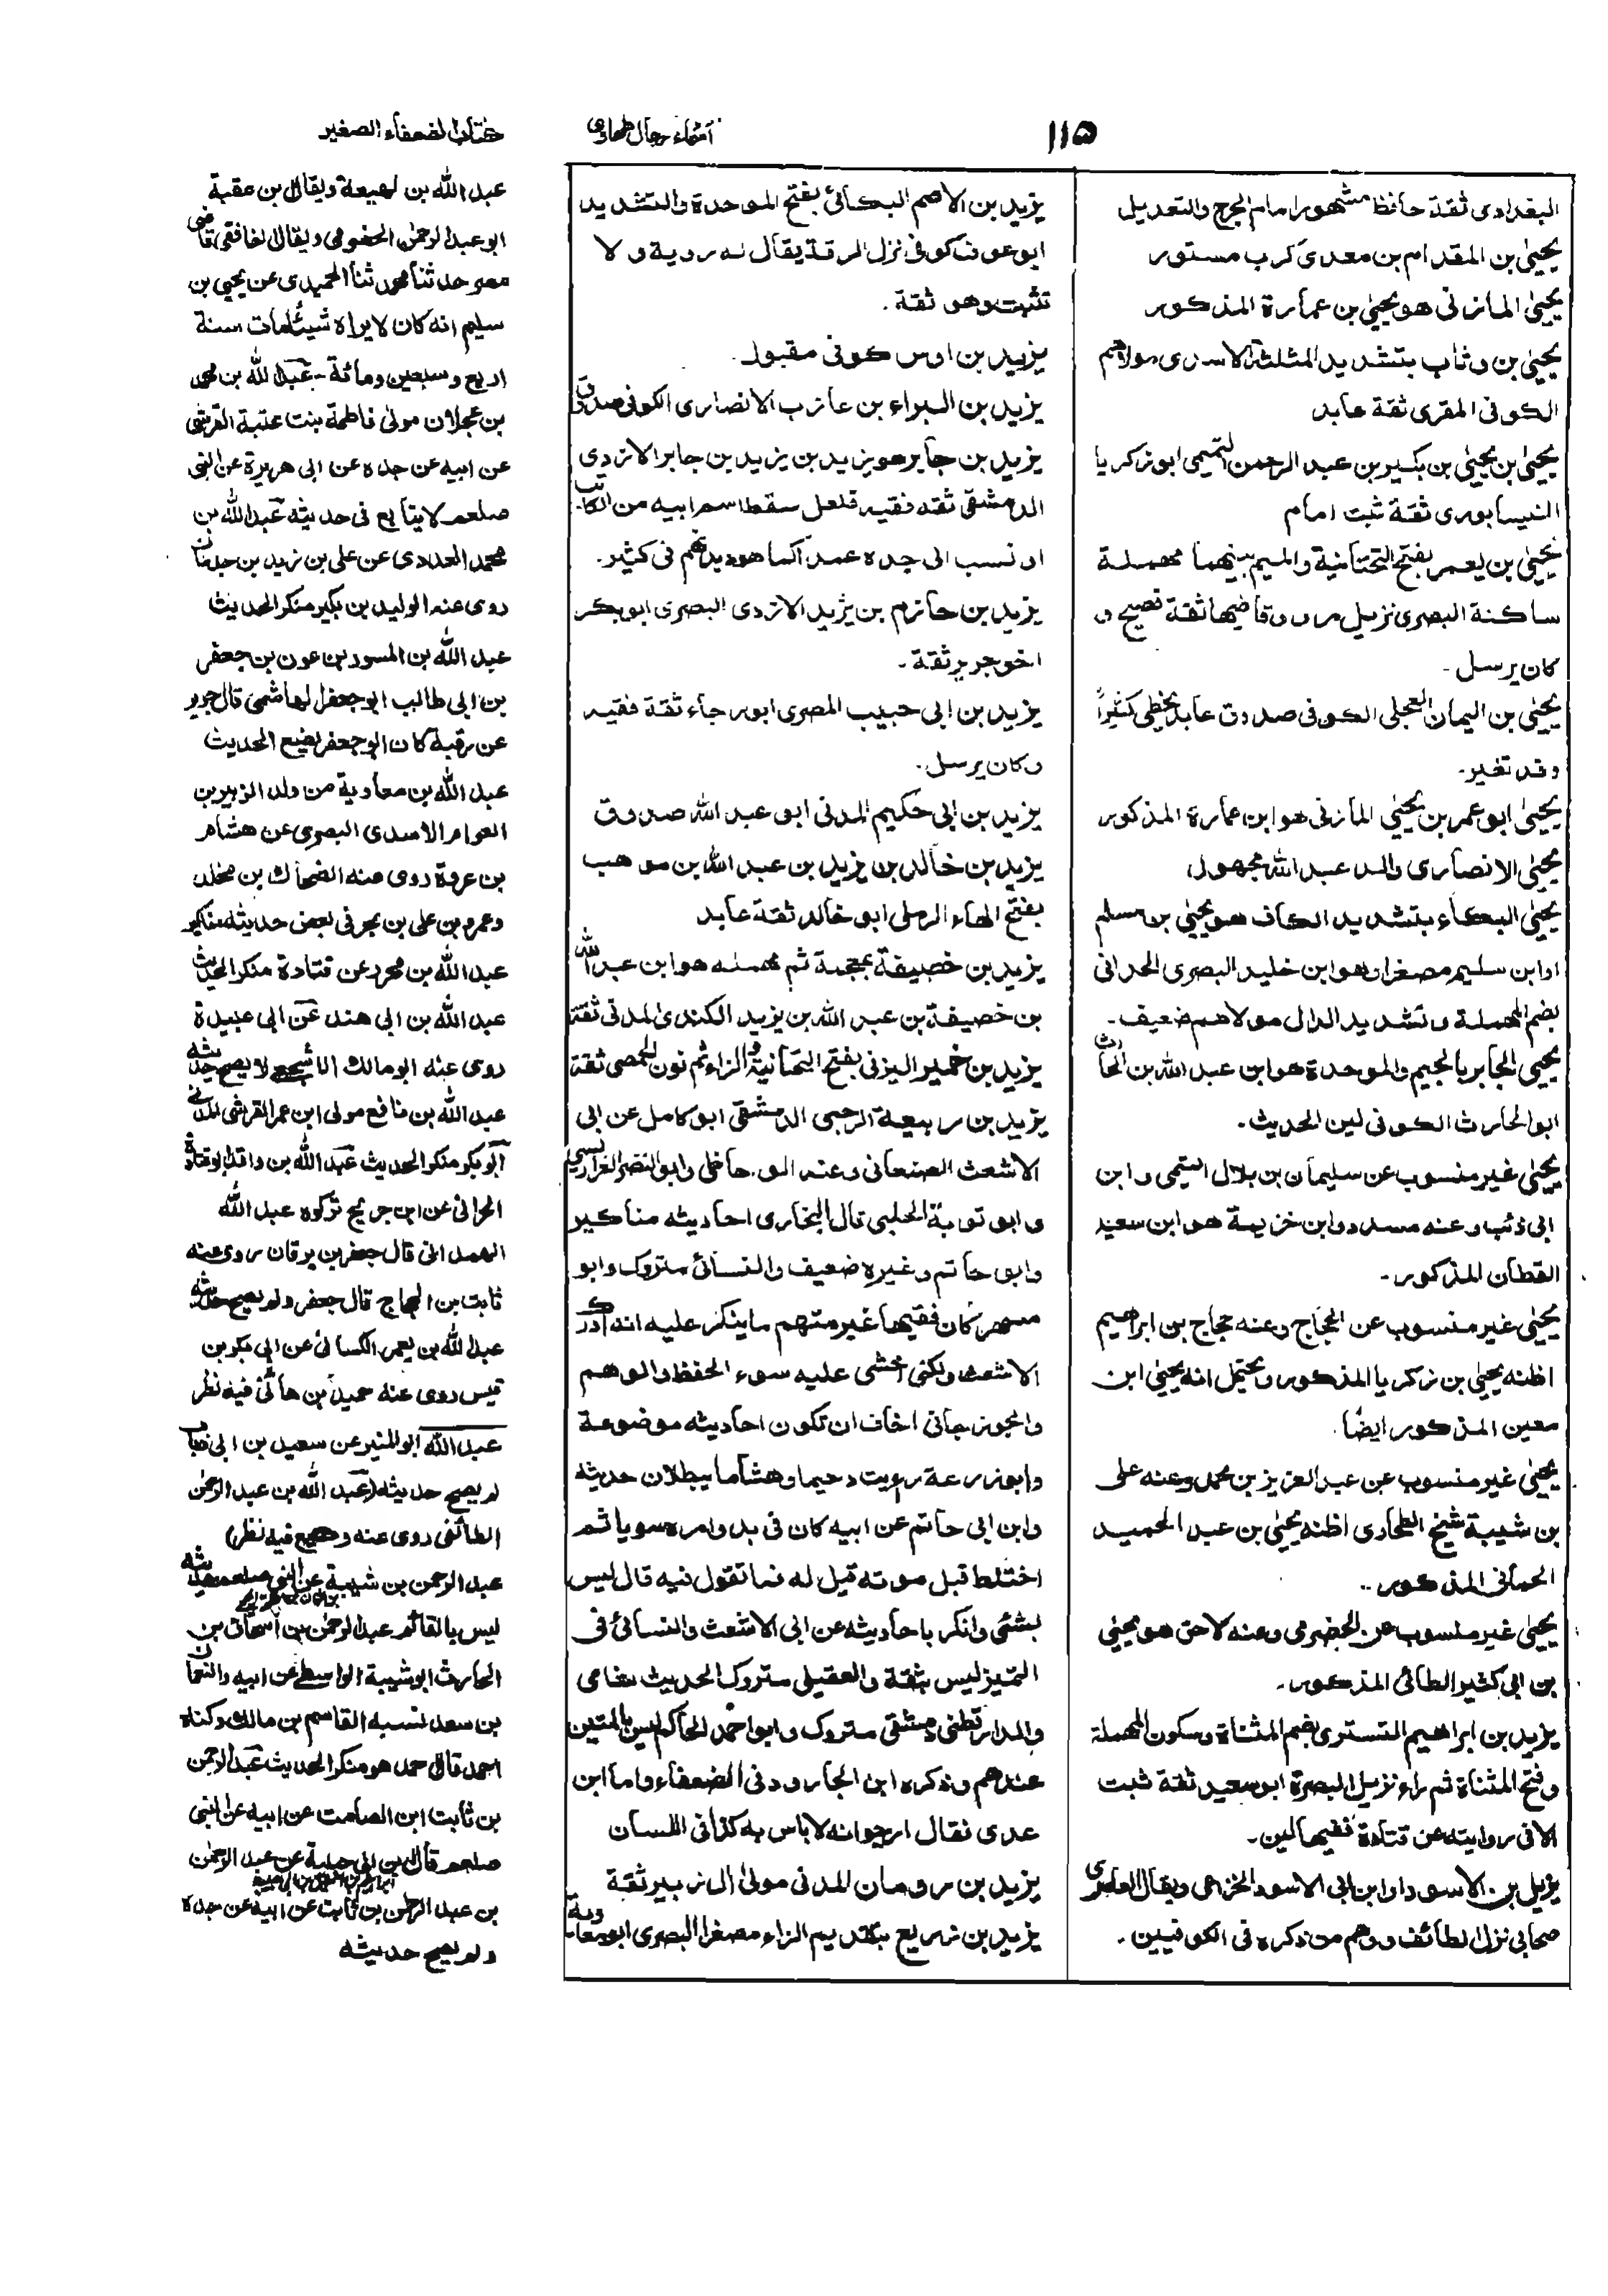 ١١٥
اسماء رجال طحاوی
كتاب الضعفاء الصغير
البغدادى ثقة حافظ مشهور امام الجرح والتعديل
يحيى بن المقدام بن معدى كرب مستور
يحيى المازنى هو يحيى بن عمارة المذكور
يحيى بن وثاب بتشديد المثلثة الاسدى مولاهم
الكوفى المقرى ثقة عابد
يحيى بن يحيى بن بكير بن عبد الرحمن التميمى ابو زكريا
النيسابورى ثقة ثبت امام
يحيى بن يعمر بفتح التحتانية والميم بينهما مهملة
ساكنة البصرى نزيل مرو وقاضيها ثقة فصيح و
كان يرسل ـ
يحيى بن اليمان العجلى الكوفى صدوق عابد يخطى كثيراً
وقد تغير ـ
يحيى ابو عمر بن يحيى المازنى هو ابن عمارة المذكور
يحيى الانصارى والد عبد الله مجهول
يحيى البكاء بتشديد الكاف هو يحيى بن مسلم
او ابن سليم مصغرا وهو ابن خليد البصرى الحدانى
بضم المهملة وتشديد الدال مولاهم ضعيف ـ
يحيى الجابر بالجيم والموحدة هو ابن عبد الله بن الحارث
ابو الحارث الكوفى لين الحديث ـ
يحيى غير منسوب عن سليمان بن بلال التيمى وابن
ابى ذئب وعنه مسدد وابن خزيمة هو ابن سعيد
القطان المذكور ـ
يحيى غير منسوب عن الحجاج وعنه حجاج بن ابراهيم
اظنه يحيى بن زكريا المذكور ويحتمل انه يحيى ابن
معين المذكور ايضا
يحيى غير منسوب عن عبد العزيز بن محمد وعنه على
بن شيبة شيخ الطحاوى اظنه يحيى بن عبد الحميد
الحمانى المذكور ـ
يحيى غير منسوب عن الحضرمى وعنه لاحق هو يحيى
بن ابى كثير الطائى المذكور ـ
يزيد بن ابراهيم التسترى بضم المثناة وسكون المهملة
وفتح المثناة ثم راء نزيل البصرة ابو سعيد ثقة ثبت
الا فى روايته عن قتادة ففيها لين ـ
يزيد بن الاسود او ابن ابى الاسود الخزاعى ويقال العامرى
صحابى نزل الطائف ووهم من ذكره فى الكوفيين ـ
يزيد بن الاصم البكائى بفتح الموحدة والتشديد
ابو عوف كوفى نزل الرقة يقال له روية ولا
تثبت وهو ثقة ـ
يزيد بن اوس كوفى مقبول ـ
يزيد بن البراء بن عازب الانصارى الكوفى صدوق
يزيد بن جابر هو يزيد بن يزيد بن جابر الازدى
الدمشقى ثقه فقيه فلعل سقط اسم ابيه من الكاتب
او نسب الى جده عمداً كما هو ديدنهم فى كثير ـ
يزيد بن حازم بن يزيد الازدى البصرى ابو بكر
اخو جرير ثقة ـ
يزيد بن ابى حبيب المصرى ابو رجاء ثقة فقيه
وكان يرسل ـ
يزيد بن ابى حكيم المدنى ابو عبد الله صدوق
يزيد بن خالد بن يزيد بن عبد الله بن موهب
بفتح الهاء الرملى ابو خالد ثقة عابد
يزيد بن خصيفة بمعجمة ثم مهمله هو ابن عبد الله
بن خصيفة بن عبد الله بن يزيد الكندى المدنى ثقة
يزيد بن خمير اليزنى بفتح التحتانية والزاء ثم نون الحمصى ثقة
يزيد بن ربيعة الرحبى الدمشقى ابو كامل عن ابى
الاشعث الصنعانى وعنه ابو حاظى وابو النضر الفراديسى
وابو توبة الحلبى قال البخارى احاديثه مناكير
وابو حاتم وغيره ضعيف والنسائى متروك وابو
مسهر كان فقيها غير متهم ما ينكر عليه انه ادرك
الاشعث ولكنى اخشى عليه سوء الحفظ والوهم
والجوزجانى اخاف ان تكون احاديثه موضوعة
وابو زرعة رءيت دحيما وهشاما يبطلان حديثه
وابن ابى حاتم عن ابيه كان فى بدو امره سويا ثم
اختلط قبل موته قيل له فما تقول فيه قال ليس
بشئى وانكر باحاديثه عن ابى الاشعث والنسائى فى
التميز ليس بثقة والعقيلى متروك الحديث شامى
والدارقطنى دمشقى متروك وابو احمد الحاكم ليس بالمتين
عندهم وذكره ابن الجارود فى الضعفاء واما ابن
عدى فقال ارجو انه لا باس به كذا فى اللسان
يزيد بن رومان المدنى مولى ال زبير ثقة
يزيد بن زريع بتقديم الزاء مصغرا البصرى ابو معاوية
عبد الله بن لهيعة ويقال بن عقبة
ابو عبد الرحمن الحضرمى ويقال الغافقى قاضى
مصر حدثنا محمد ثنا الحميدى عن يحيى بن
سليم انه كان لا يراه شيئا مات سنة
اربع وسبعين ومائة ـ عبد الله بن محمد
بن عجلان مولى فاطمة بنت عتبة القرشى
عن ابيه عن جده عن ابى هريرة عن النبى
صلعم لا يتابع فى حديثه عبد الله بن
محمد العدوى عن على بن زيد بن جدعان
روى عنه الوليد بن بكير منكر الحديث
عبد الله بن المسور بن عون بن جعفر
بن ابى طالب ابو جعفر الهاشمى قال جرير
عن رقبة كان ابو جعفر يضع الحديث
عبد الله بن معاوية من ولد الزبير بن
العوام الاسدى البصرى عن هشام
بن عروة روى عنه الضحاك بن مخلد
وعمرو بن على بن بحر فى بعض حديثه مناكير
عبد الله بن محرر عن قتادة منكر الحديث
عبد الله بن ابى هند عن ابى عبيدة
روى عنه ابو مالك الاشجعى لا يصح حديثه
عبد الله بن نافع مولى ابن عمر القرشى المدنى
ابو بكر منكر الحديث عبد الله بن واقد ابو قتادة
الحرانى عن ابن جريج تركوه عبد الله
الهمدانى قال جعفر بن برقان روى عنه
ثابت بن الحجاج قال جعفر ولم يصح حديثه
عبد الله بن يعمر الكسائى عن ابى بكر بن
قيس روى عنه حميد بن هانى فيه نظر
عبد الله ابو المنير عن سعيد بن ابى ذباب
لم يصح حديثه (عبد الله بن عبد الرحمن
الطائفى روى عنه وكيع فيه نظر)
عبد الرحمن بن شيبة عن النبى صلعم حديثه
ليس بالقائم عبد الرحمن بن اسحاق بن
الحارث ابو شيبة الواسطى عن ابيه والنعمان
بن سعد نسبه القاسم بن مالك وكناه
احمد قال احمد هو منكر الحديث عبد الرحمن
بن ثابت ابن الصامت عن ابيه عن النبى
صلعم قال ابن ابى حبيبة عن عبد الرحمن
بن عبد الرحمن بن ثابت عن ابيه عن جده
ولم يصح حديثه